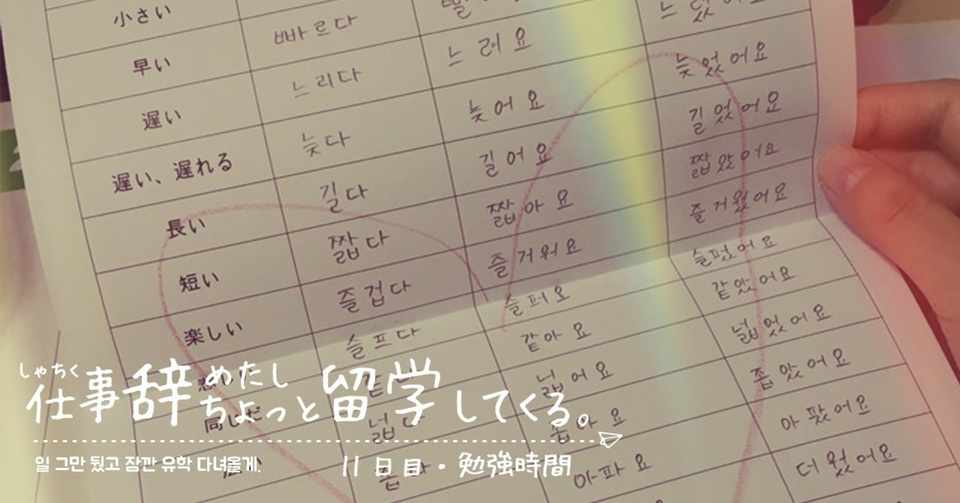 小さい
早い 빠르다
遅い 느리다 느려요
遅い、遅れる 늦다 늦어요 늦었어요
長い 길다 길어요 길었어요
短い 짧다 짧아요 짧았어요
楽しい 즐겁다 즐거워요 즐거웠어요
슬프다 슬퍼요 슬펐어요
同じだ 같아요 같았어요
넓다 넓어요 넓었어요
좁아요 좁았어요
아파요 아팠어요
더웠어요
しゃちく
仕事辞めたし
ちょっと留学してくる。
일 그만 뒀고 잠깐 유학 다녀올게.
11日目・勉強時間